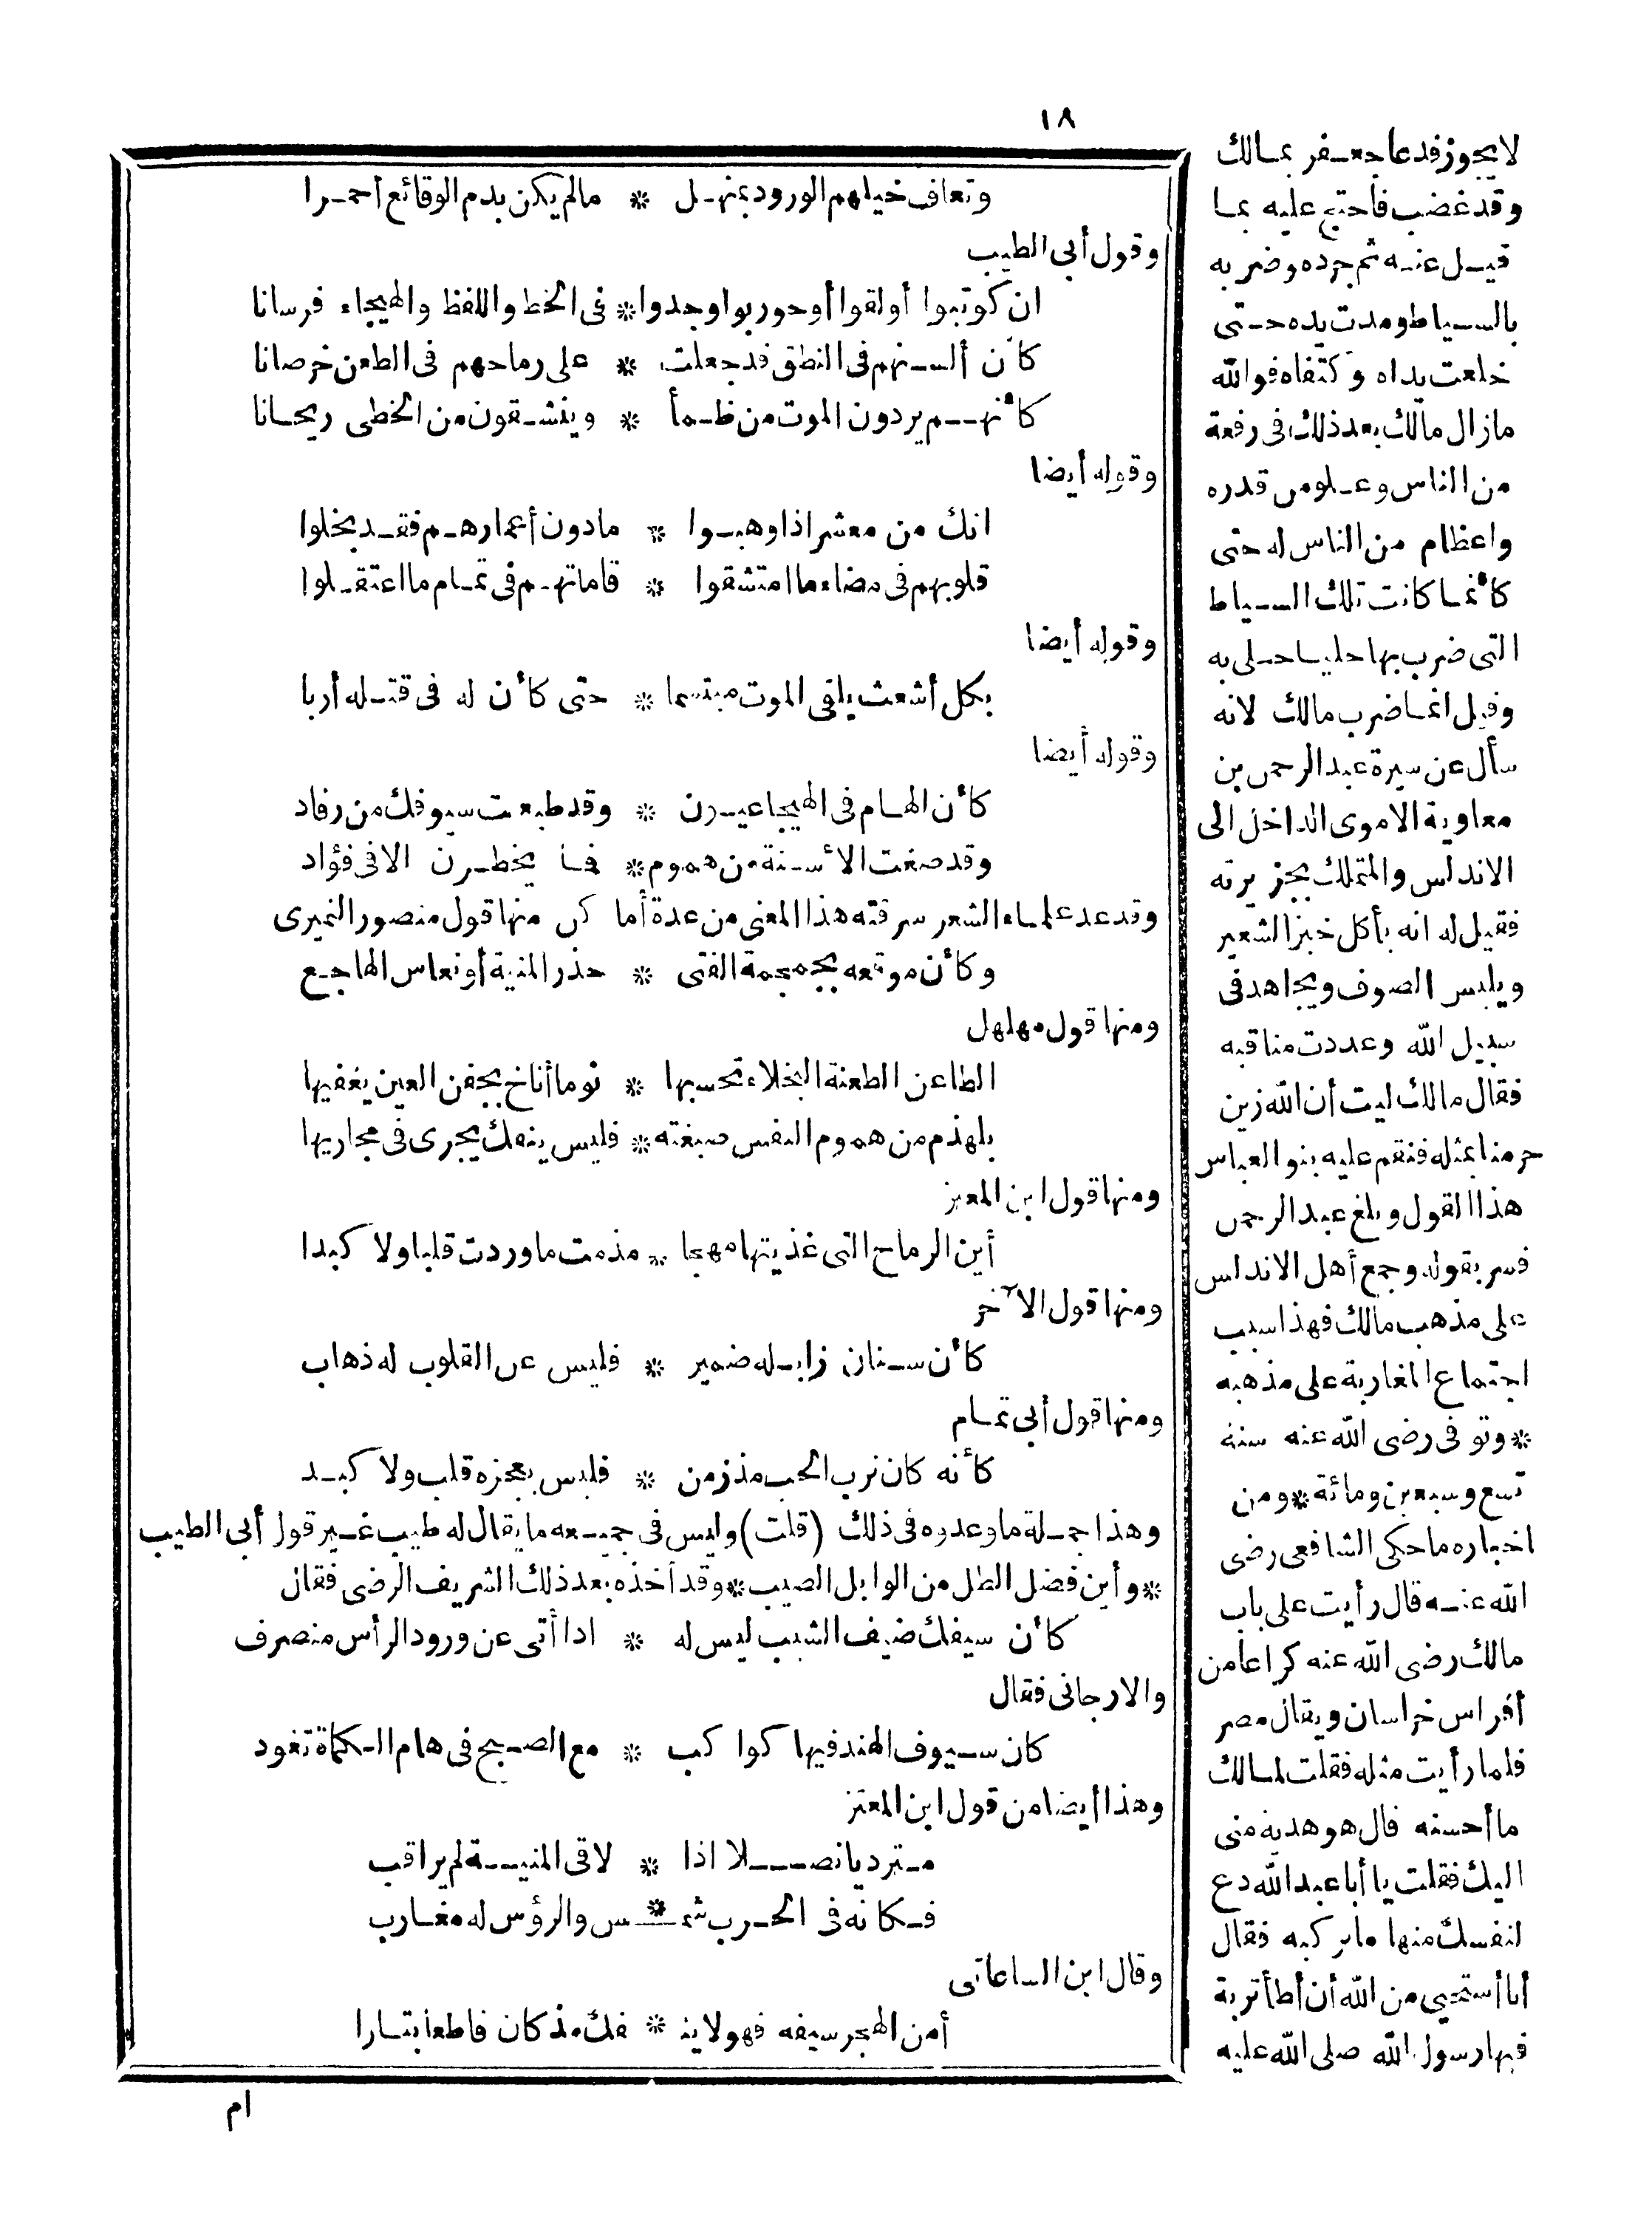 ١٨
وتعاف خيلهم الورود بمنهل * مالم يكن بدم الوقائع أحمرا
وقول أبي الطيب
ان كوتبوا أولقوا أوحوربوا وجدوا * فى الخط واللفظ والهيجاء فرسانا
كأن ألسنهم فى النطق قد جعلت * على رماحهم فى الطعن خرصانا
كأنهم يردون الموت من ظمأ * وينشقون من الخطى ريحانا
وقوله أيضا
انك من معشر اذا وهبوا * مادون أعمارهم فقد بخلوا
قلوبهم فى مضاء ما امتشقوا * قاماتهم فى تمام ما اعتقلوا
وقوله أيضا
بكل أشعث يلقى الموت مبتسما * حتى كأن له فى قتله أربا
وقوله أيضا
كأن الهام فى الهيجا عيون * وقد طبعت سيوفك من رقاد
وقد صغت الأسنة من هموم * فما يخطرن الا فى فؤاد
وقد عد علماء الشعر سرقته هذا المعنى من عدة أماكن منها قول منصور النميرى
وكأن موقعه بجمجمة الفتى * حذر المنية أو نعاس الهاجع
ومنها قول مهلهل
الطاعن الطعنة النجلاء تحسبها * نوما أناخ بجفن العين يغفيها
بلهذم من هموم النفس صبغته * فليس ينفك يجرى فى مجاريها
ومنها قول ابن المعتز
أين الرماح التى غذيتها مهجا * مذمت ما وردت قلبا ولا كبدا
ومنها قول الآخر
كأن سنان ذابله ضمير * فليس عن القلوب له ذهاب
ومنها قول أبى تمام
كأنه كان ترب الحب مذ زمن * فليس يعجزه قلب ولا كبد
وهذا جملة ما وعدوه فى ذلك (قلت) وليس فى جميعه ما يقال له طيب غير قول أبى الطيب
* وأين فضل الطل من الوابل الصيب * وقد أخذه بعد ذلك الشريف الرضى فقال
كأن سيفك ضيف الشيب ليس له * اذا أتى عن ورود الرأس منصرف
والارجانى فقال
كان سيوف الهند فيها كواكب * مع الصبح فى هام الكماة تغود
وهذا أيضا من قول ابن المعتز
متردیا نصلا اذا * لاقى المنية لم يراقب
فكانه فى الحرب شمـ * ـس والرؤس له مغارب
وقال ابن الساعاتى
أمن الهجر سيفه فهو لاينـ * فك مذ كان قاطعا بتارا
ام
لا يجوز فدعا جعفر بمالك
وقد غضب فاحتج عليه بما
قيل عنه ثم جرده وضربه
بالسياط ومدت يده حتى
خلعت يداه وكتفاه فوالله
مازال مالك بعد ذلك فى رفعة
من الناس وعلو من قدره
واعظام من الناس له حتى
كأنما كانت تلك السياط
التى ضرب بها حليا حلى به
وقيل انما ضرب مالك لانه
سأل عن سيرة عبد الرحمن بن
معاوية الاموى الداخل الى
الاندلس والمتملك بجزيرته
فقيل له انه يأكل خبز الشعير
ويلبس الصوف ويجاهد فى
سبيل الله وعددت مناقبه
فقال مالك ليت أن الله زين
حرمنا بمثله فنقم عليه بنو العباس
هذا القول وبلغ عبد الرحمن
فسر بقوله وجمع أهل الاندلس
على مذهب مالك فهذا سبب
اجتماع المغاربة على مذهبه
* وتوفى رضى الله عنه سنة
تسع وسبعين ومائة * ومن
اخباره ما حكى الشافعى رضى
الله عنه قال رأيت على باب
مالك رضى الله عنه كراعا من
أفراس خراسان ويقال مصر
فلما رأيت مثله فقلت لمالك
ما أحسنه قال هو هدية منى
اليك فقلت يا أبا عبد الله دع
لنفسك منها ما يركبه فقال
أنا أستحيى من الله أن أطأ تربة
فيها رسول الله صلى الله عليه